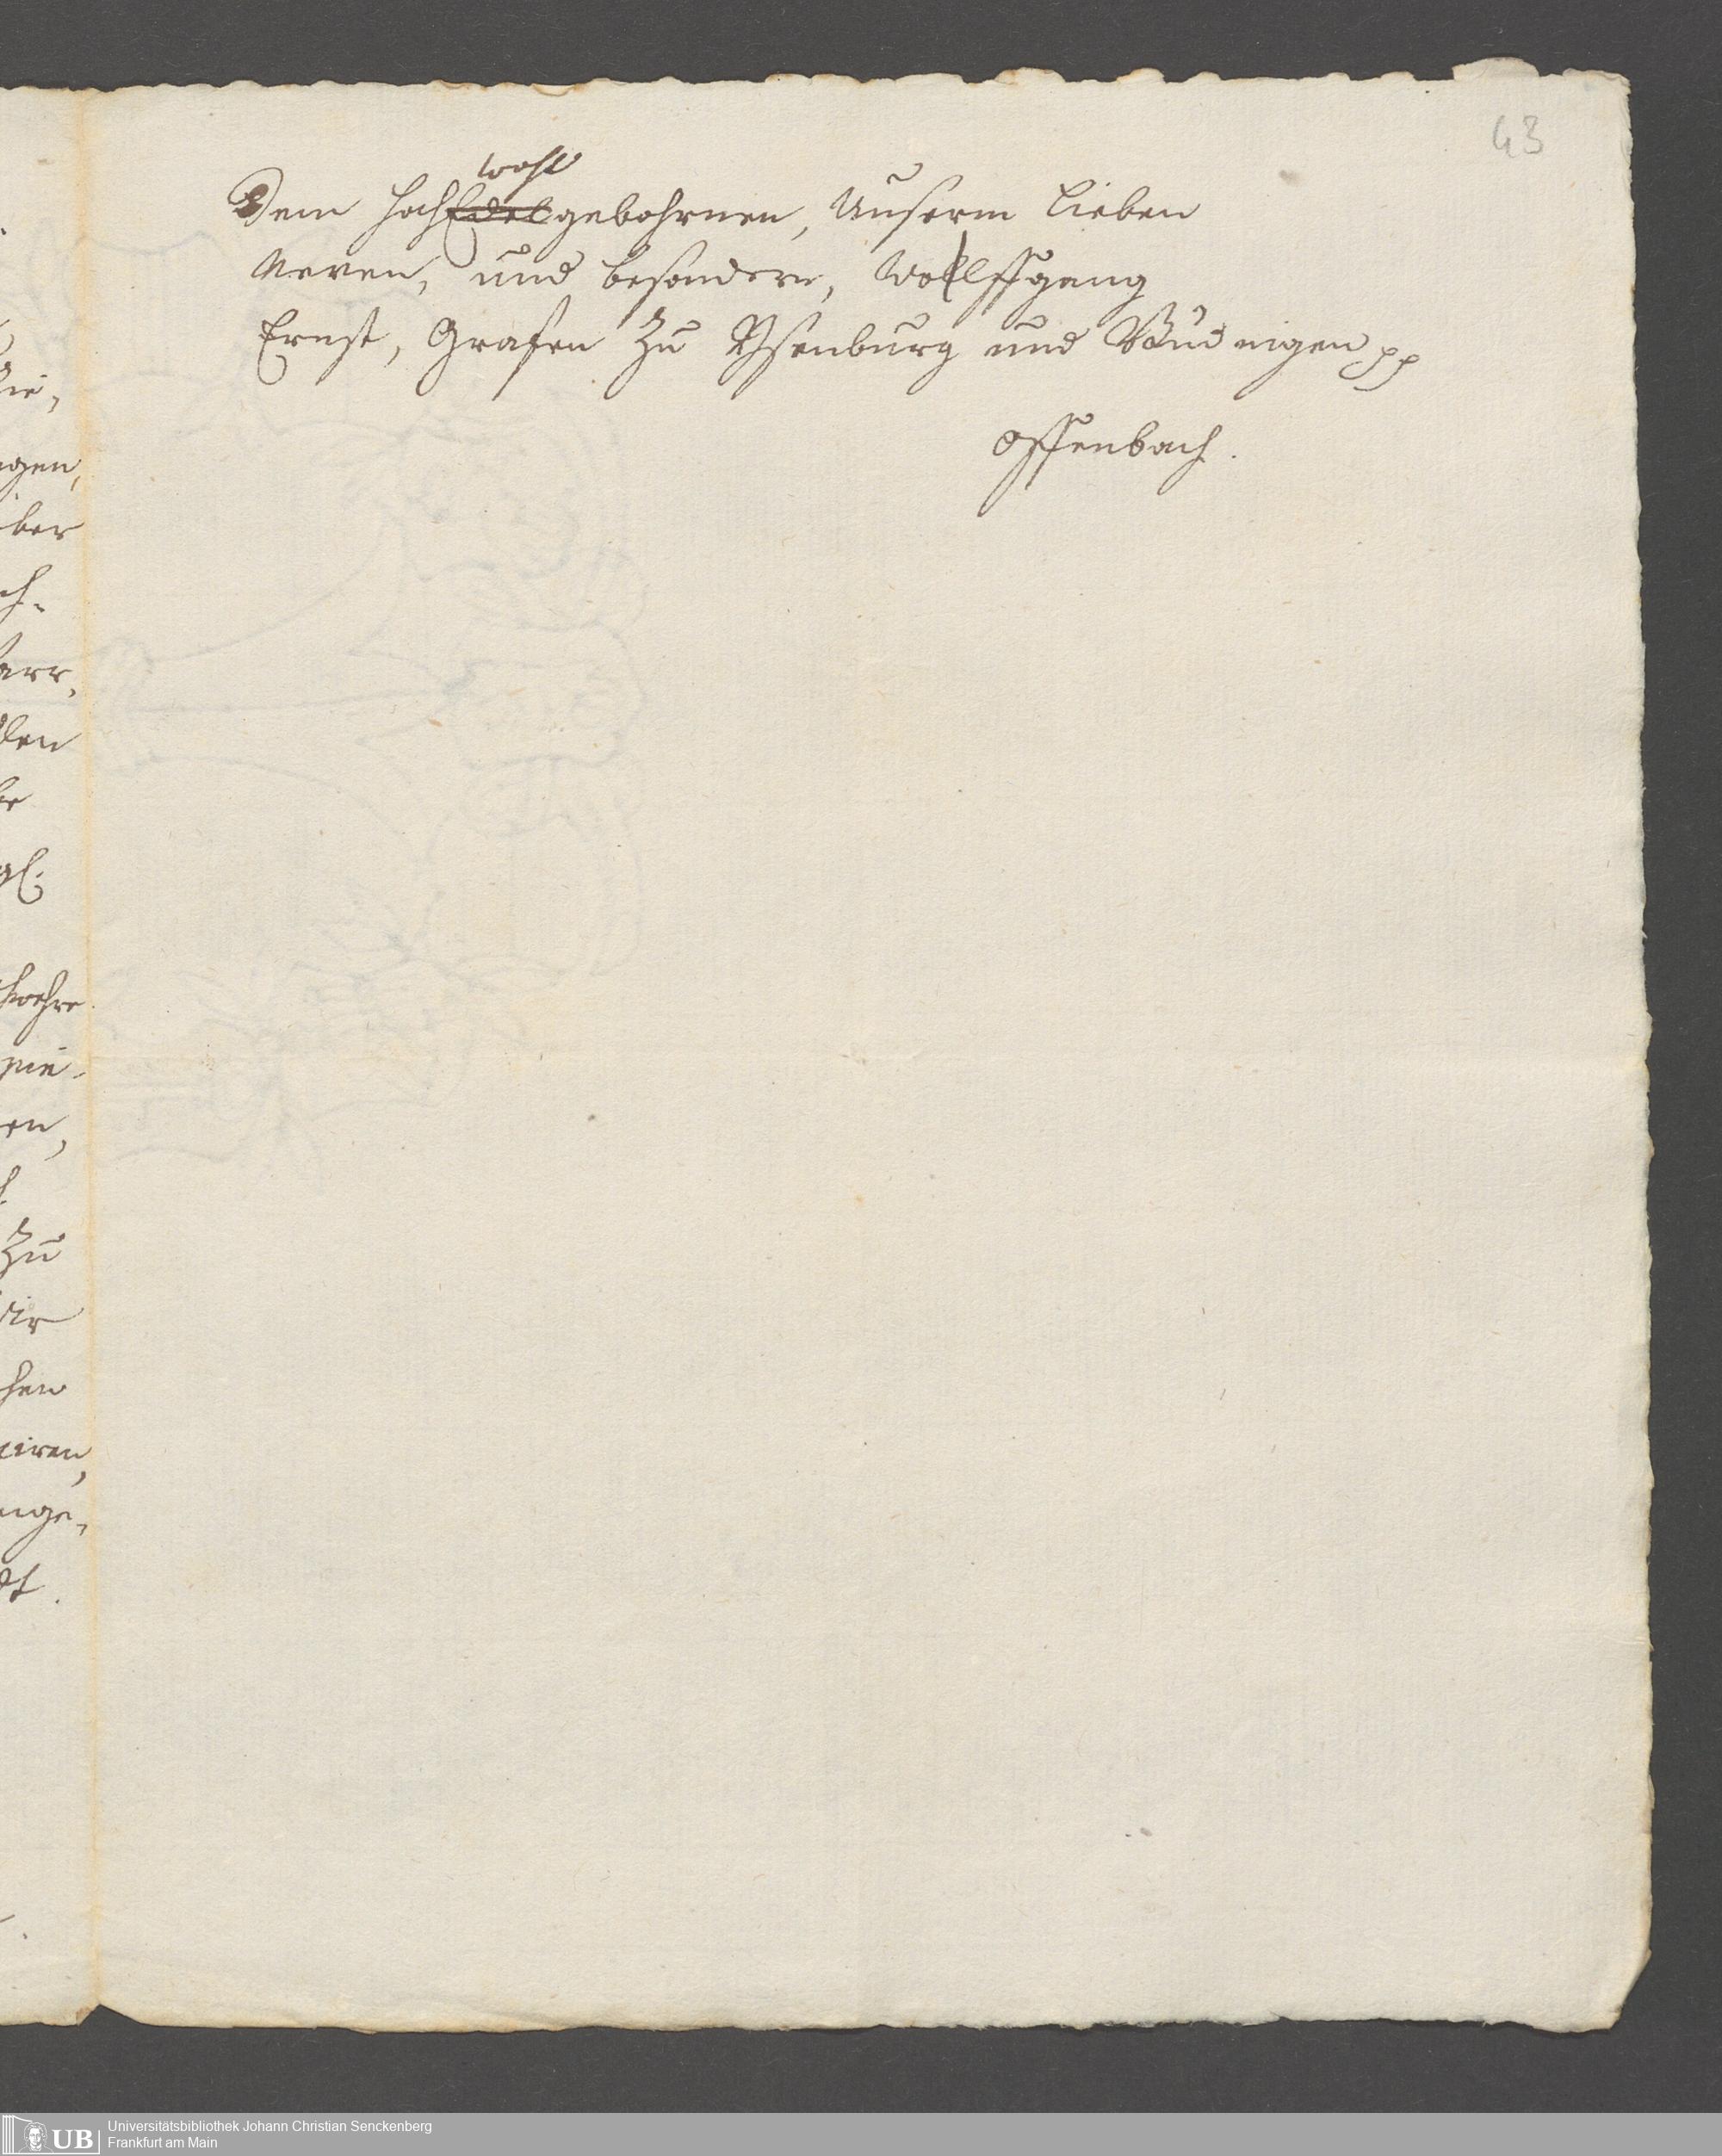 43
wohl
Dem HochEdelgebohrnen, Unserm lieben
Neven, und besondern, Wolffgang
Ernst, Grafen zu Ysenburg und Büdingen pp
Offenbach.
gen,
ber
ch-
arr,
den
en,
Zu
hen
iren,
nge,
UB
Universitätsbibliothek Johann Christian Senckenberg
Frankfurt am Main